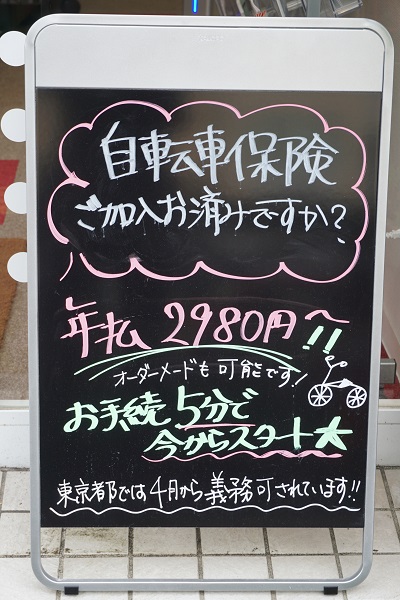 自転車保険
ご加入お済みですか?
年払 2980円〜!!
オーダーメードも可能です!
お手続5分で
今からスタート★
東京都では4月から義務可されています!!